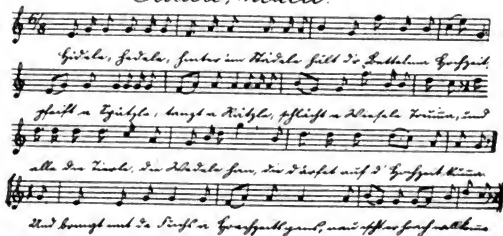 6/8
Hidele, hadele, hinter im Städele hält dr Bettelma Hochzeit,
pfeift a Spätzle, tanzt a Kätzle, schlächt a Wiesele Trumma, und
alla dia Tierle, dia Wedele han, dia därfet auf d' Hochzeit kumma
Und brengt de Fuchs a Hoachzeitsgans, nau ischt er hoach